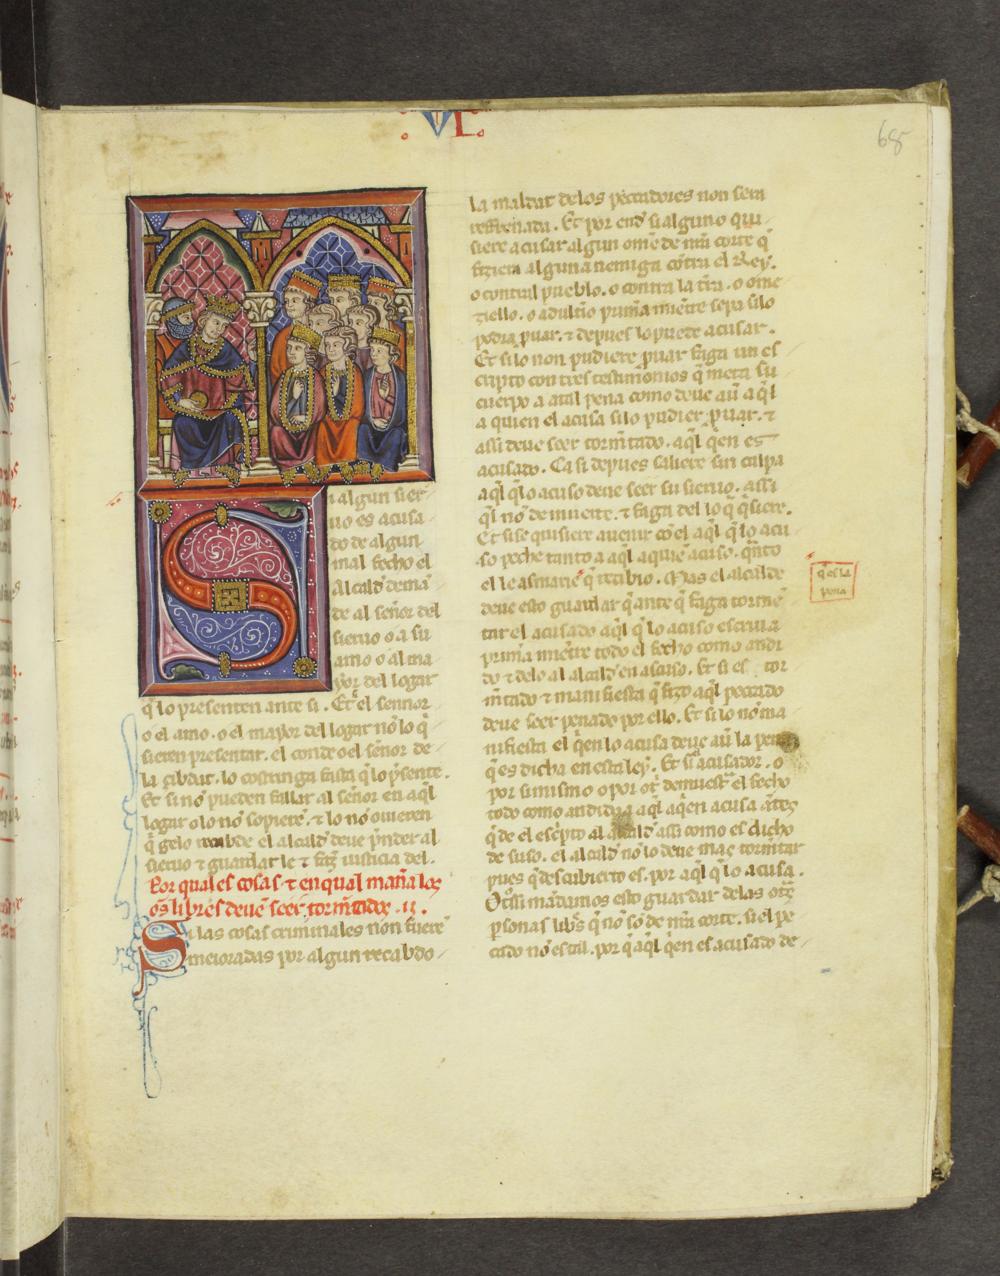 VI
68
S
i algun sier
uo es acusa
do de algun
mal fecho el
alcald̃ demã
de al señor del
sieruo o a su
amo o al ma
yor del logar
q̃ lo presenten ante si. Et el sennor
o el amo. o el mayor del logar nõ lo q̃
sieren presentar. el conde o el señor de
la çibdat. lo costringa fasta q̃ lo p̃sente.
Et si nõ pueden fallar al señor en aq̃l
logar o lo nõ sopierẽ. ⁊ lo nõ ouieren
q̃ gelo recabde el alcald̃ deue p̃nder al
sieruo ⁊ guardar le ⁊ iusticia del.
Por quales cosas ⁊ en qual mañа los
õs libres deuẽ seer torm̃tados .ii.
Si las cosas criminales non fuerẽ
meioradas por algun recabdo
la maldat de los peccadores non sera
reffrenada. Et por end̃ si alguno qui
siere acusar algun ome de nr̃a corte q̃
fiziera alguna nemiga cõtra el Rey.
o contral pueblo. o contra la tr̃ra. o ome
ziello. o adulterio prim̃a miẽtre sepa si lo
podra p̃uar. ⁊ depues lo puede acusar.
Et si lo non pudiere p̃uar faga un es
cripto con tres testimonios q̃ meta su
cuerpo a atal pena como deue auer aq̃l
a quien el acusa si lo pudier p̃uar. ⁊
assi deue seer torm̃tado. aq̃l q̃en es
acusado. Ca si depues saliere sin culpa
aq̃l q̃ lo acuso deue seer su sieruo. assi
q̃l nõ de muerte. ⁊ faga del lo q̃ q̃siere.
Et si se quisiere auenir cõ el aq̃l q̃ lo acu
so peche tanto a aq̃l a quiẽ acuso. q̃nto
el le asmare q̃ recibio. Mas el alcalde
deue esto guardar q̃ ante q̃ faga tormẽ
tar el acusado aq̃l q̃ lo acuso escriua
prim̃a miẽtre todo el fecho como andi
do ⁊ delo al alcald̃ en ascuso. Et si es tor
m̃tado ⁊ manifiesta q̃ fizo aq̃l peccado
deue seer penado por ello. Et si lo nõ ma
nifiesta el q̃en lo acusa deue auer la pena
q̃ es dicha en esta ley. Et si el acusador. o
por si mismo o por otro demuestra el fecho
todo como andido a aq̃l a q̃en acusa ãtes
q̃ de el esc̃pto al alcald̃ assi como es dicho
de suso. el alcald̃ nõ lo deue mas torm̃tar
pues q̃ descubierto es. por aq̃l q̃ lo acusa.
Otrossi mãdamos esto guardar delas otras
p̃sonas lib̃s q̃ nõ sõ de nr̃a corte. si el pe
cado nõ es tal. por q̃ aq̃l q̃en es acusado de
q̃ es la
pena